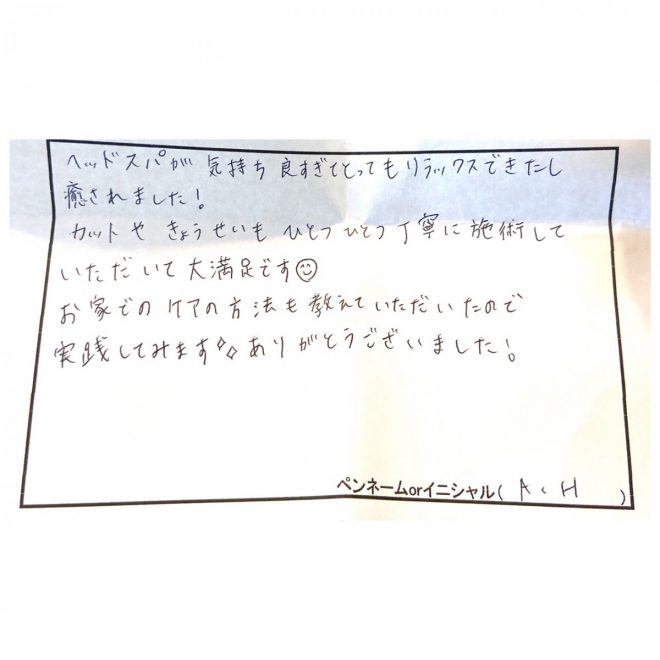 ヘッドスパが気持ち良すぎてとってもリラックスできたし
癒されました!
カットやきょうせいもひとつひとつ丁寧に施術して
いただいて大満足です☺
お家でのケアの方法も教えていただいたので
実践してみます✧ありがとうございました!
ペンネームorイニシャル( A、H )